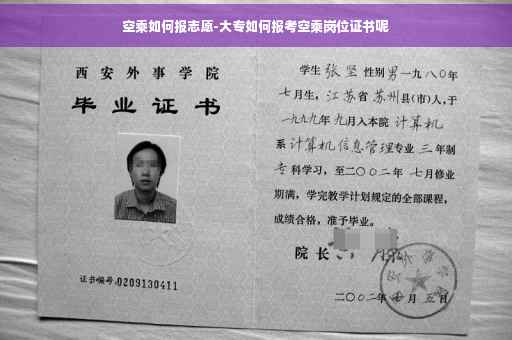 空乘如何报志愿-大专如何报考空乘岗位证书呢
西安外事学院
毕业证书
证书编号:0209130411
学生 张坚 性别 男 一九八〇年
七月生，江苏省 苏州县(市)人,于
一九九九年 九月入本院 计算机
系 计算机信息管理专业 三 年制
专科学习，至二〇〇二年 七月修业
期满，学完教学计划规定的全部课程，
成绩合格，准予毕业。
院长
二〇〇二年 月 五日